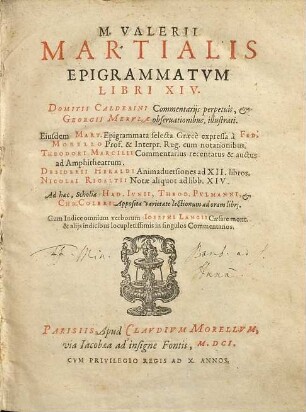 M. VALERII
MARTIALIS
EPIGRAMMATVM
LIBRI XIV.
DOMITII CALDERINI Commentarijs perpetuis, &
GEORGII MERVLÆ observationibus, illustrati.
Eiusdem MART. Epigrammata selecta Græcè expressa à FED.
MORELLO Prof. & Interpr. Reg. cum notationibus.
THEODORI MARCILII Commentarius recentatus & auctus
ad Amphitheatrum.
DESIDERII HERALDI Animadversiones ad XII. libros.
NICOLAI RIGALTII Notæ aliquot ad libb. XIV.
Ad hæc, Scholia HAD. IVNII, THEOD. PVLMANNI, &
CHR. COLERI, Apposita varietate lectionum ad oram libr.
Cum Indice omnium verborum IOSEPHI LANGII Cæsaremont.
& alijs indicibus locupletissimis in singulos Commentarios.
PARISIIS, Apud CLAVDIVM MORELLVM,
via Iacobæa ad insigne Fontis, M.DCI.
CVM PRIVILEGIO REGIS AD X. ANNOS.